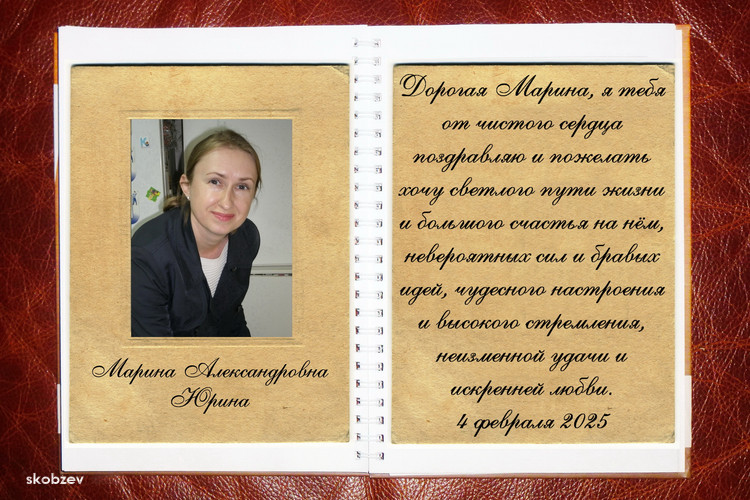 Марина Александровна
Юрина
Дорогая Марина, я тебя
от чистого сердца
поздравляю и пожелать
хочу светлого пути жизни
и большого счастья на нём,
невероятных сил и бравых
идей, чудесного настроения
и высокого стремления,
неизменной удачи и
искренней любви.
4 февраля 2025
skobzev